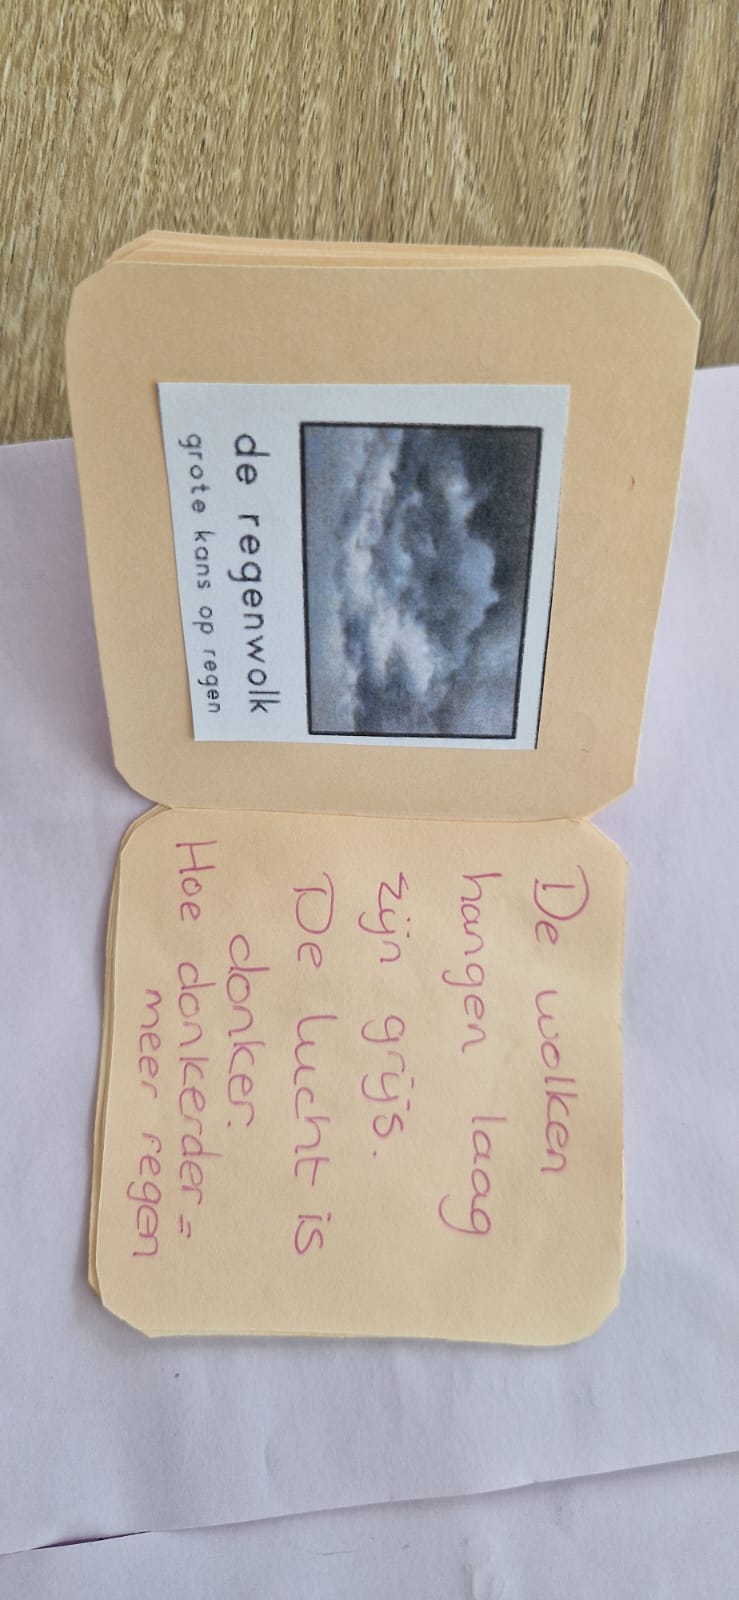 de regenwolk
grote kans op regen
De wolken
hangen laag
zijn grijs.
De lucht is
donker.
Hoe donkerder =
meer regen